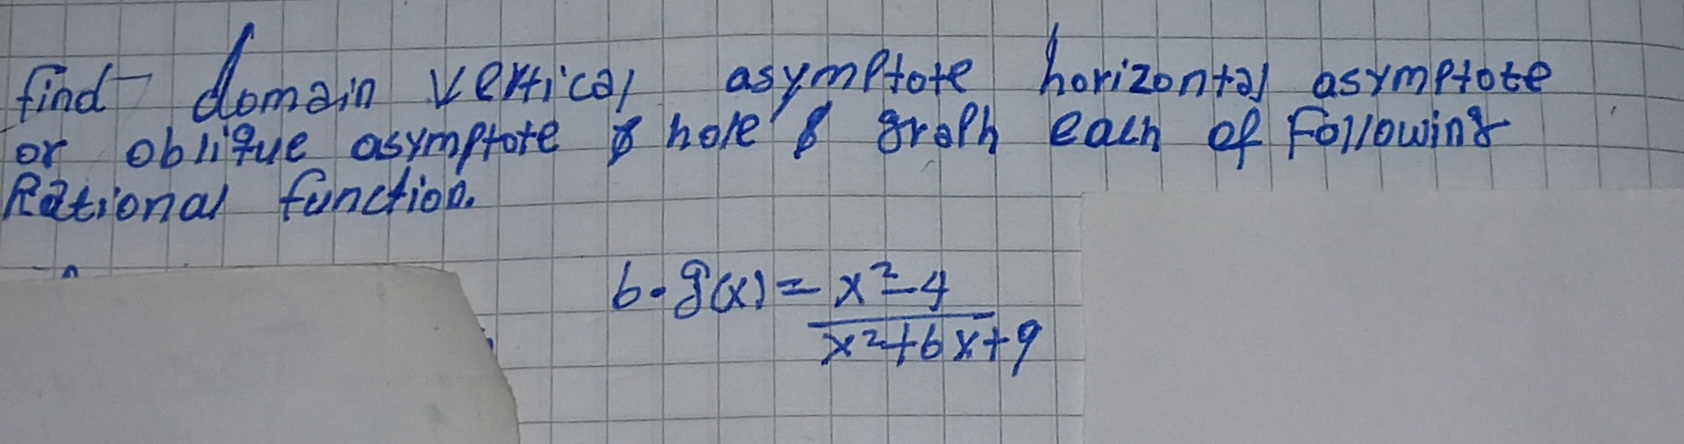 find domain vertical asymptote horizontal asymptote
or oblique asymptote & hole & graph each of following
Rational function.
b. g(x) = x²-4
x²+6x+9